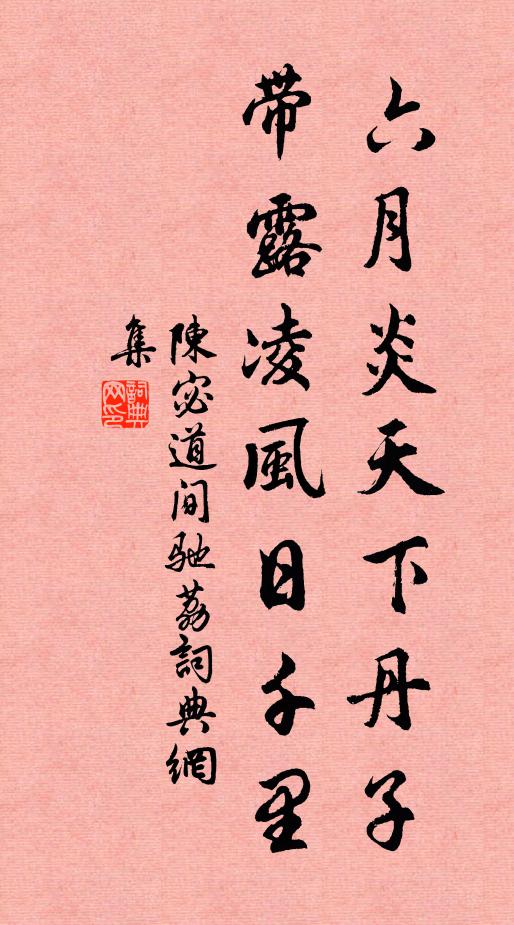 六月炎天下丹子
带露凌風日千里
陳宓道间馳荔詞典網
集
詞典
网印